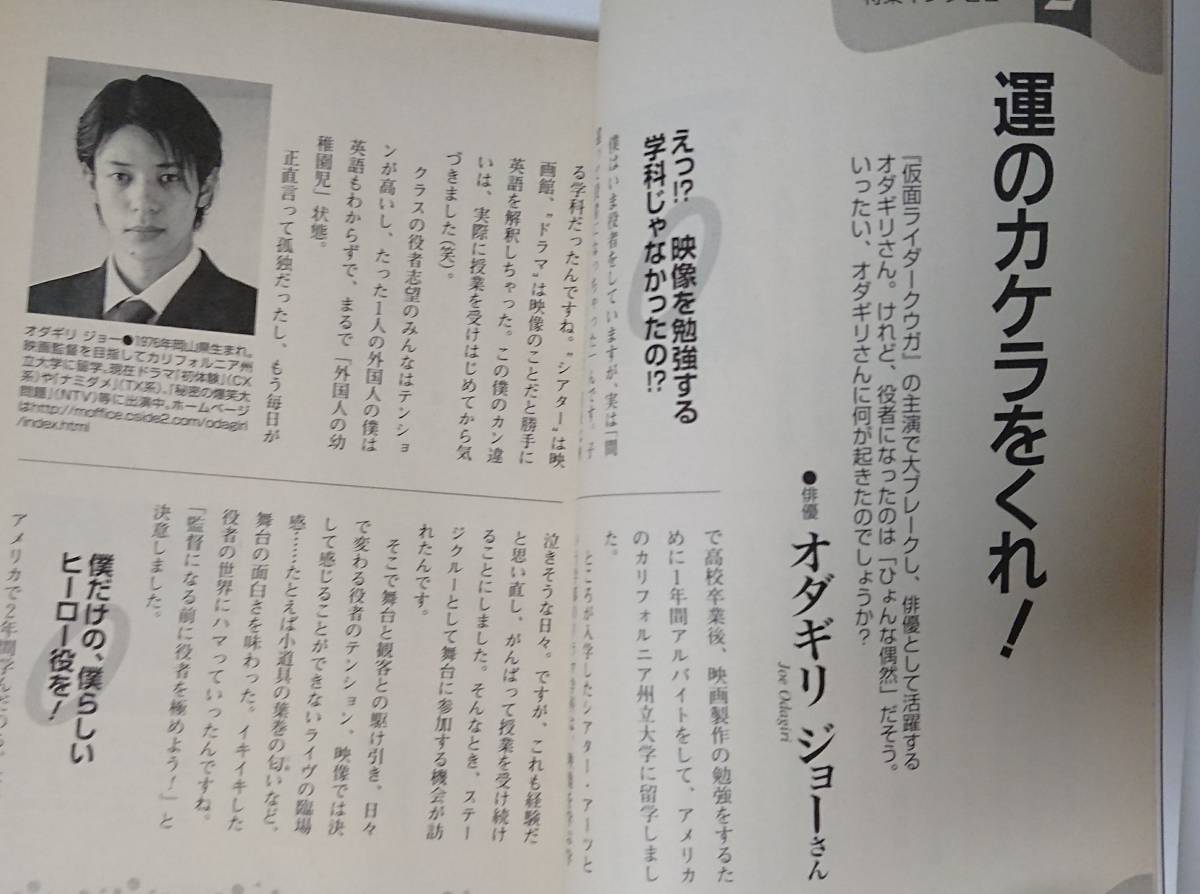 運のカケラをくれ!
『仮面ライダークウガ』の主演で大ブレークし、俳優として活躍する
オダギリさん。けれど、役者になったのは「ひょんな偶然」だそう。
いったい、オダギリさんに何が起きたのでしょうか?
●俳優 オダギリ ジョーさん
Joe Odagiri
えっ!? 映像を勉強する
学科じゃなかったの!?
僕はいま役者をしていますが、実は一問
で高校卒業後、映画製作の勉強をするた
めに1年間アルバイトをして、アメリカ
のカリフォルニア州立大学に留学しまし
た。
ところが入学したシアター・アーツと
る学科だったんですね。"シアター"は映
画館、"ドラマ"は映像のことだと勝手に
英語を解釈しちゃった。この僕のカン違
いは、実際に授業を受けはじめてから気
づきました(笑)。
クラスの役者志望のみんなはテンショ
ンが高いし、たった1人の外国人の僕は
英語もわからずで、まるで「外国人の幼
稚園児」状態。
正直言って孤独だったし、もう毎日が
泣きそうな日々。ですが、これも経験だ
と思い直し、がんばって授業を受け続け
ることにしました。そんなとき、ステー
ジクルーとして舞台に参加する機会が訪
れたんです。
そこで舞台と観客との駆け引き、日々
で変わる役者のテンション、映像では決
して感じることができないライヴの臨場
感……たとえば小道具の葉巻の匂いなど、
舞台の面白さを味わった。イキイキした
役者の世界にハマっていったんですね。
「監督になる前に役者を極めよう!」と
決意しました。
僕だけの、僕らしい
ヒーロー役を!
アメリカで2年間学んだ
オダギリ ジョー●1976年岡山県生まれ。
映画監督を目指してカリフォルニア州
立大学に留学。現在ドラマ『初体験』(CX
系)や『ナミダメ』(TX系)、『秘密の爆笑大
問題』(NTV)等に出演中。ホームページ
はhttp://moffice.cside2.com/odagiri
/index.html